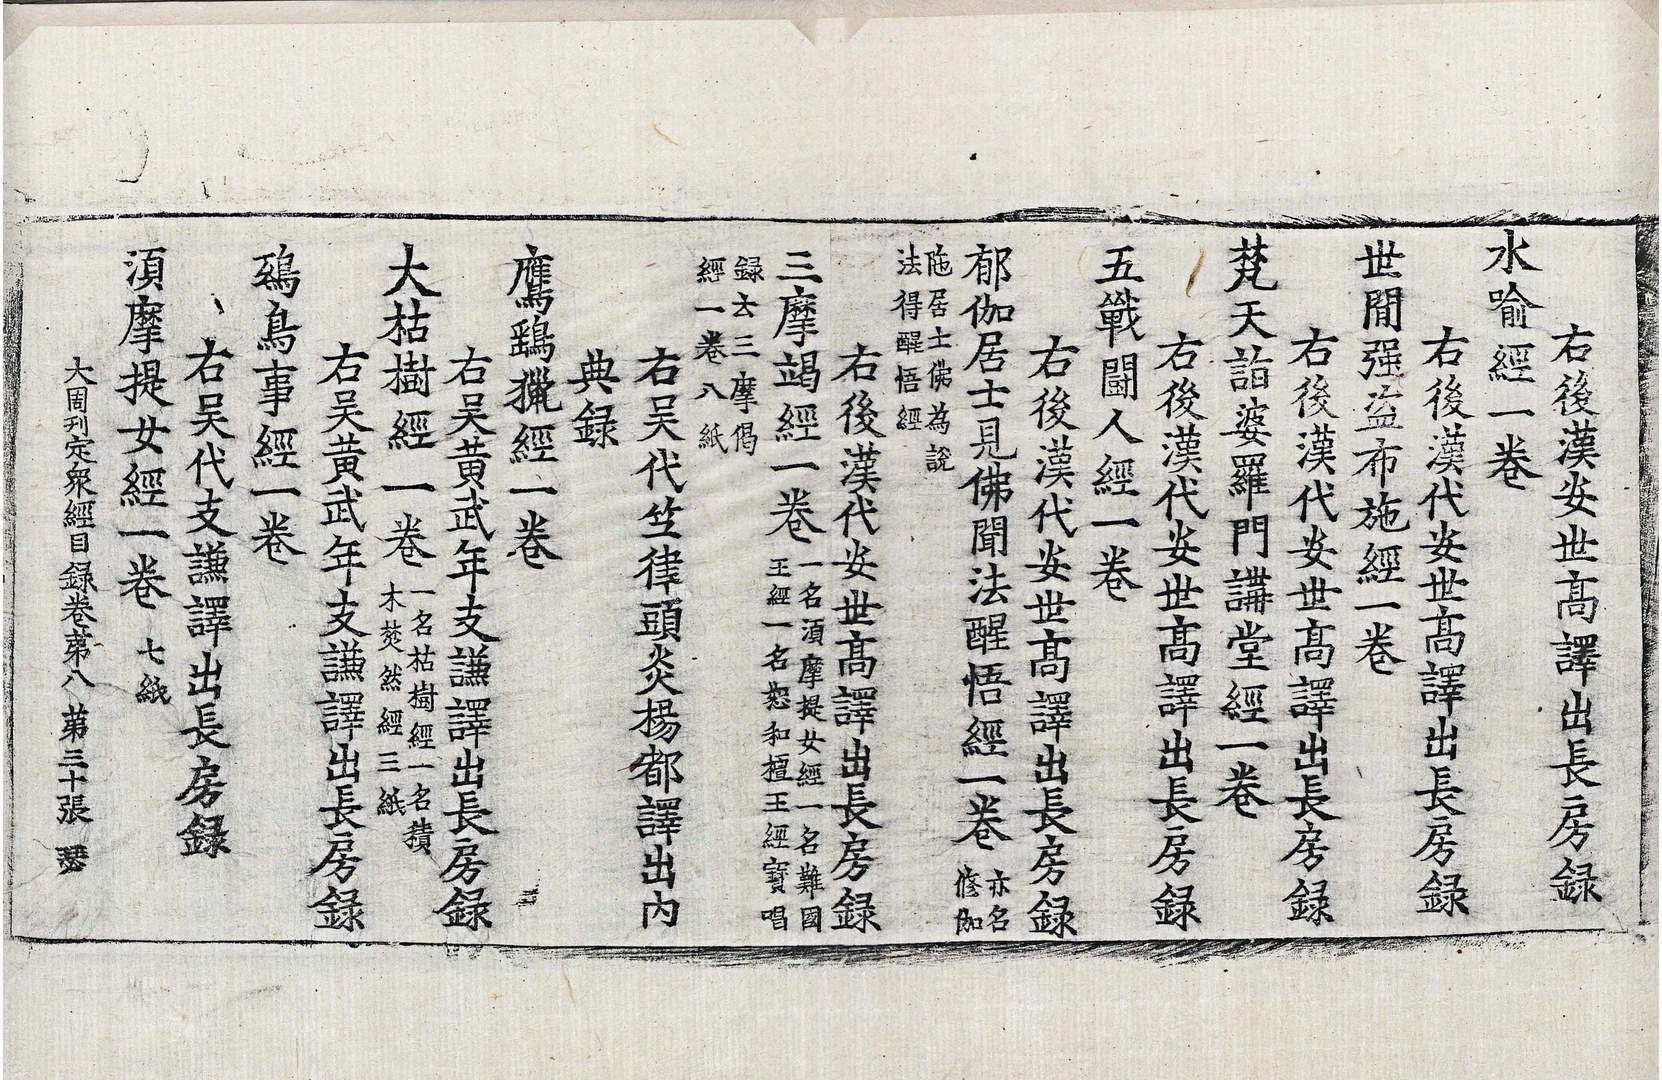 右後漢安世高譯出長房録
水喻經一卷
右後漢代安世高譯出長房録
世間强盗布施經一卷
右後漢代安世高譯出長房録
梵天詣婆羅門講堂經一卷
右後漢代安世高譯出長房録
五戰鬪人經一卷
右後漢代安世高譯出長房録
郁伽居士見佛聞法醒悟經一卷
亦名
修伽
陁居士佛為説
法得醒悟經
右後漢代安世高譯出長房録
三摩竭經一卷
一名湏摩提女經一名難國
王經一名恕和檀王經寶唱
録云三摩偈
經一卷八紙
右吴代竺律頭炎揚都譯出內
典録
鷹鷂獵經一卷
右吴黄武年支謙譯出長房録
大枯樹經一卷
一名枯樹經一名積
木𦶟然經三紙
右吴黄武年支謙譯出長房録
鵄鳥事經一卷
右吴代支謙譯出長房録
湏摩提女經一卷
七紙
大周刊定衆經目録卷第八
第三十張
瑟